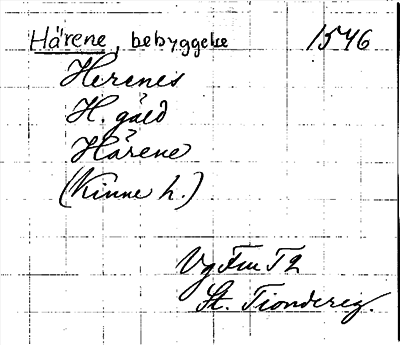 Härene, bebyggelse 1546
Herenes
H. gäld
Härene
(Kinne h.)
Vg Fru T 2
St. Tiondereg.